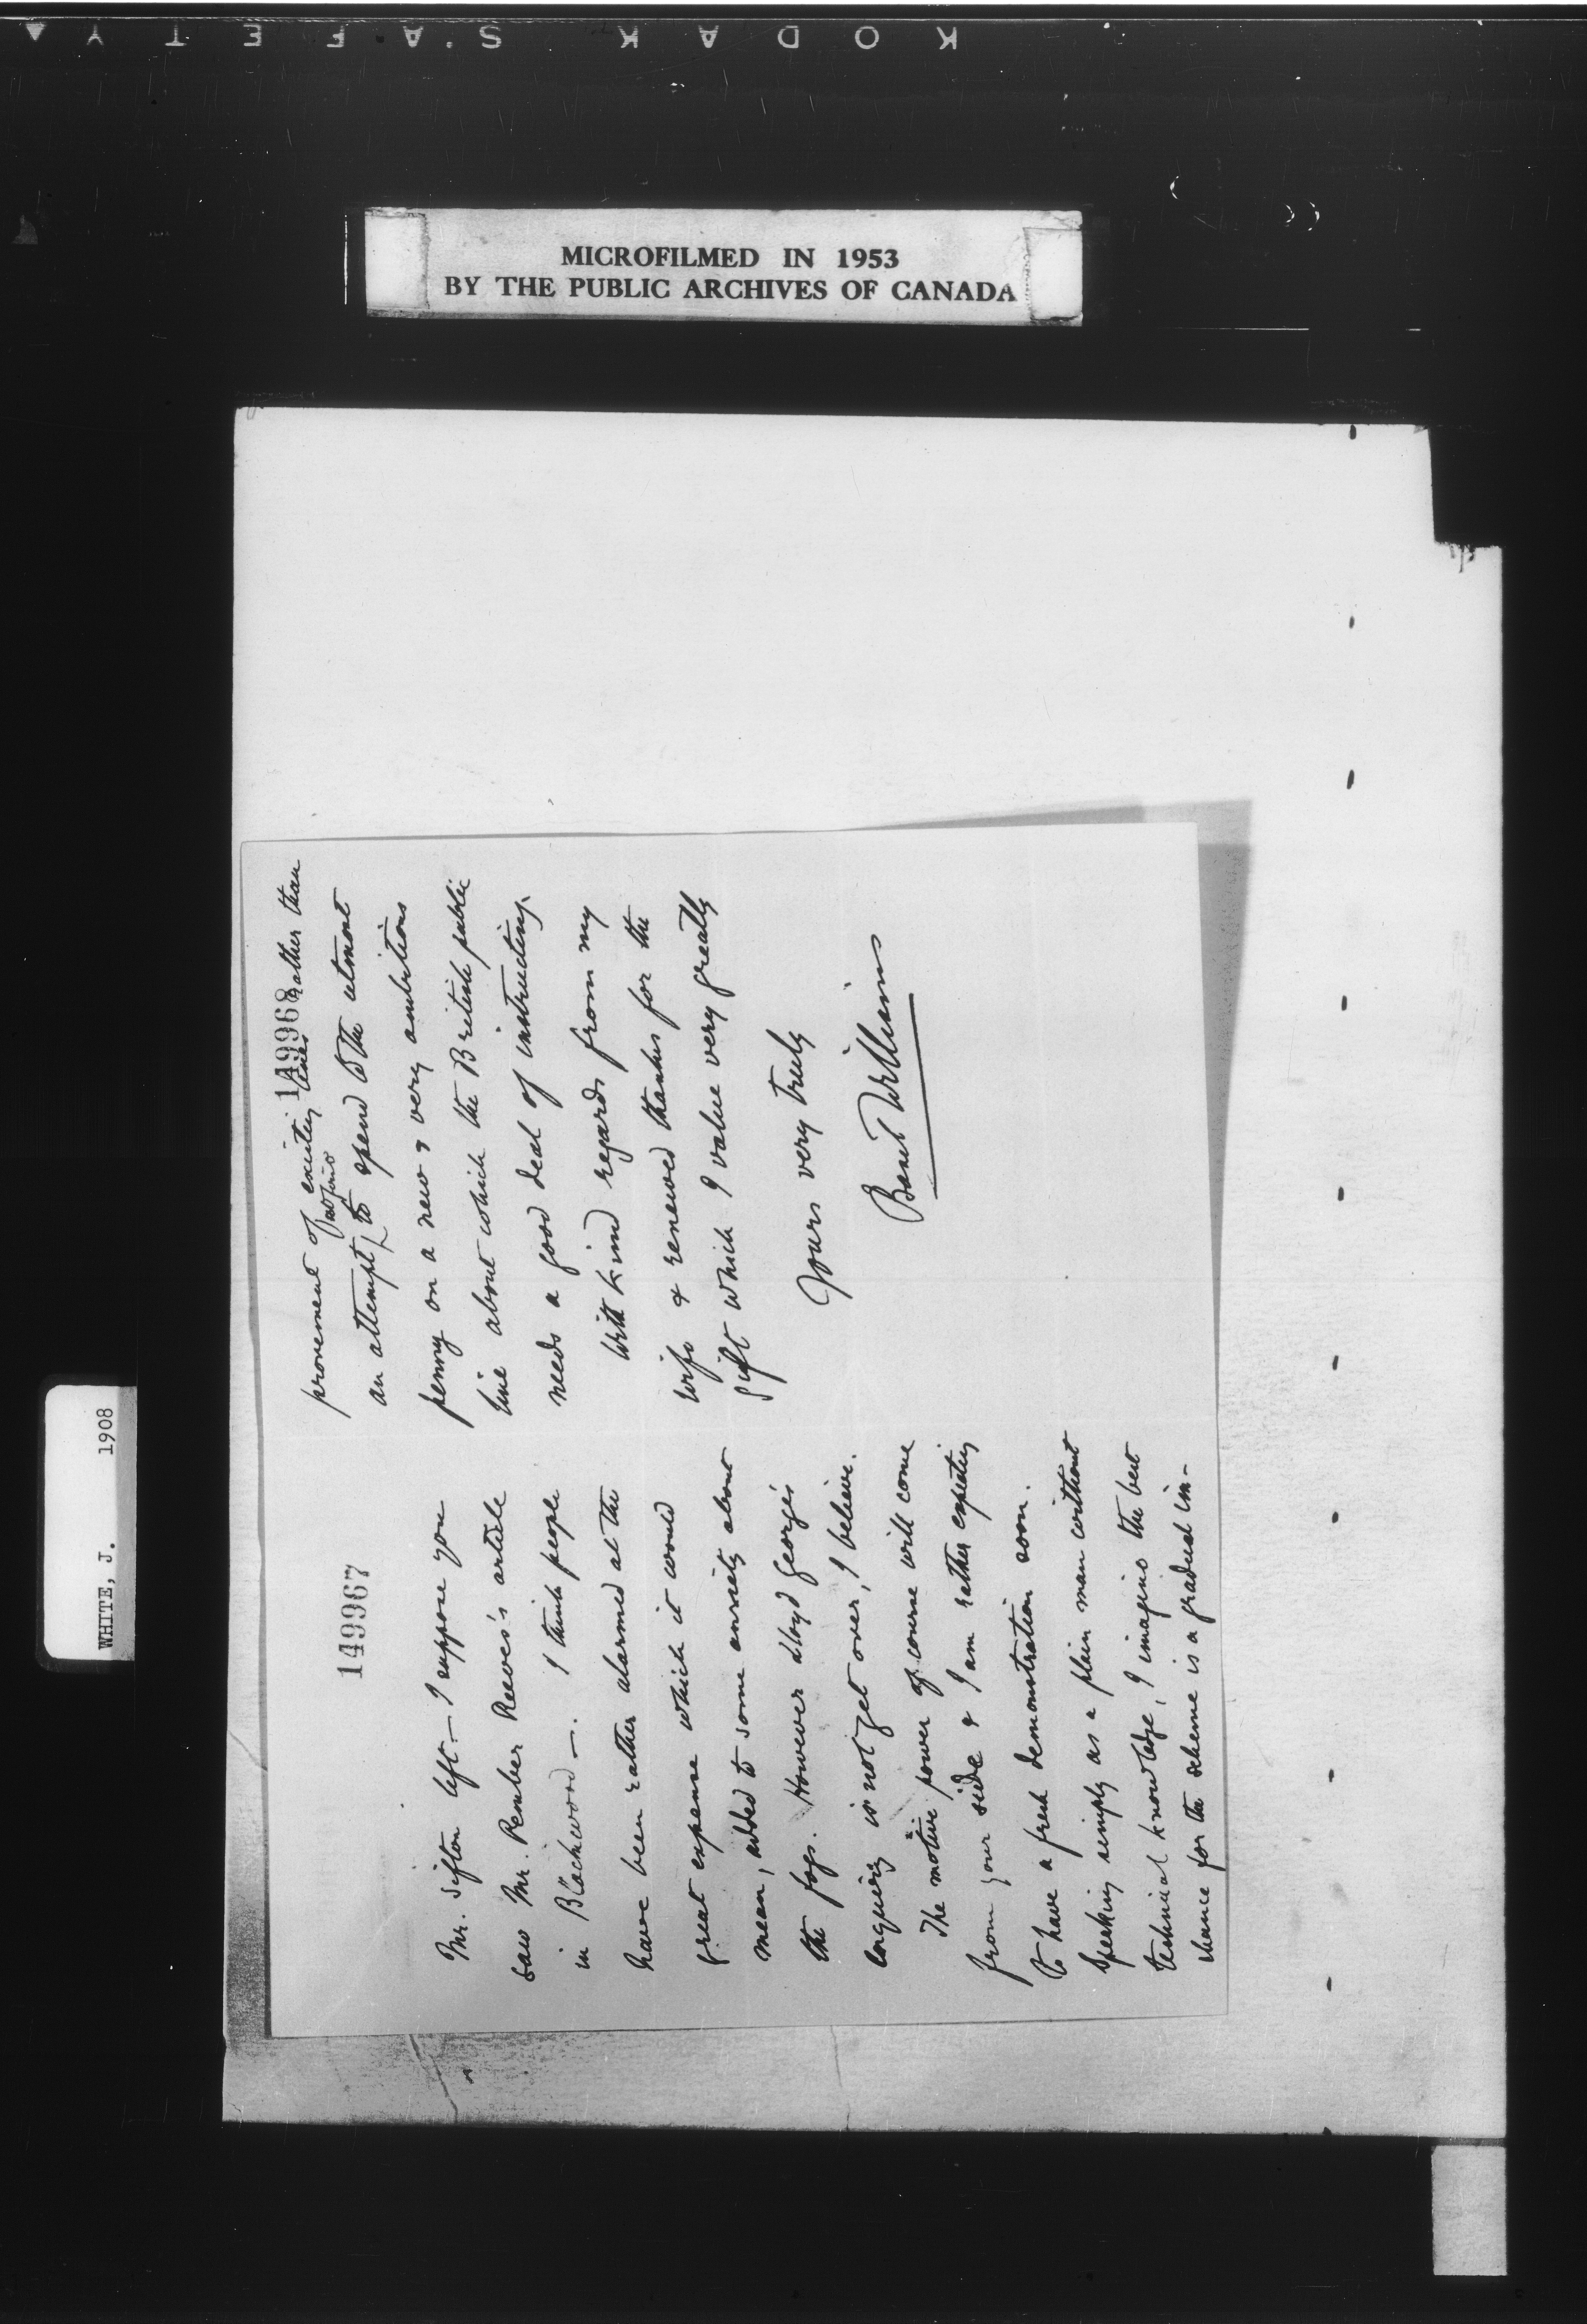 KODAK SAFETY
MICROFILMED IN 1953
BY THE PUBLIC ARCHIVES OF CANADA
WHITE, J. 1908
149967
Mr. Sifton left – I suppose you
saw Mr. Pember Reeves's article
in Blackwood –. I think people
have been rather alarmed at the
great expense which it would
mean, added to some anxiety about
the fogs. However Lloyd George's
enquiry is not yet over, I believe.
The motive power of course will come
from your side & I am rather expecting
to have a fresh demonstration soon.
Speaking simply as a plain man without
technical knowledge, I imagine the best
chance for the scheme is a gradual im-
149968
provement of existing lines rather than
an attempt to spend to the utmost
penny on a new & very ambitious
line about which the British public
needs a good deal of instructing.
With kind regards from my
wife & renewed thanks for the
gift which I value very greatly
Yours very truly
Basil Williams